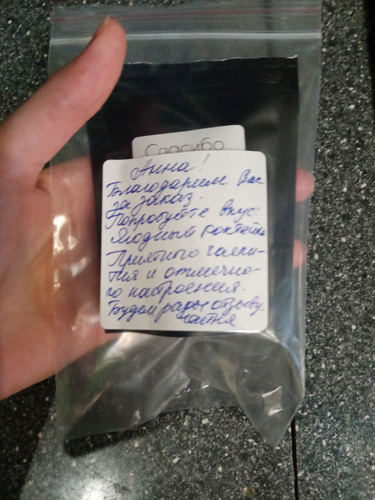 Спасибо
Анна!
Благодарим Вас
за заказ.
Попробуйте вкус:
Ягодный коктейль
Приятного чаепи-
тия и отлично-
го настроения.
Будем рады отзыву.